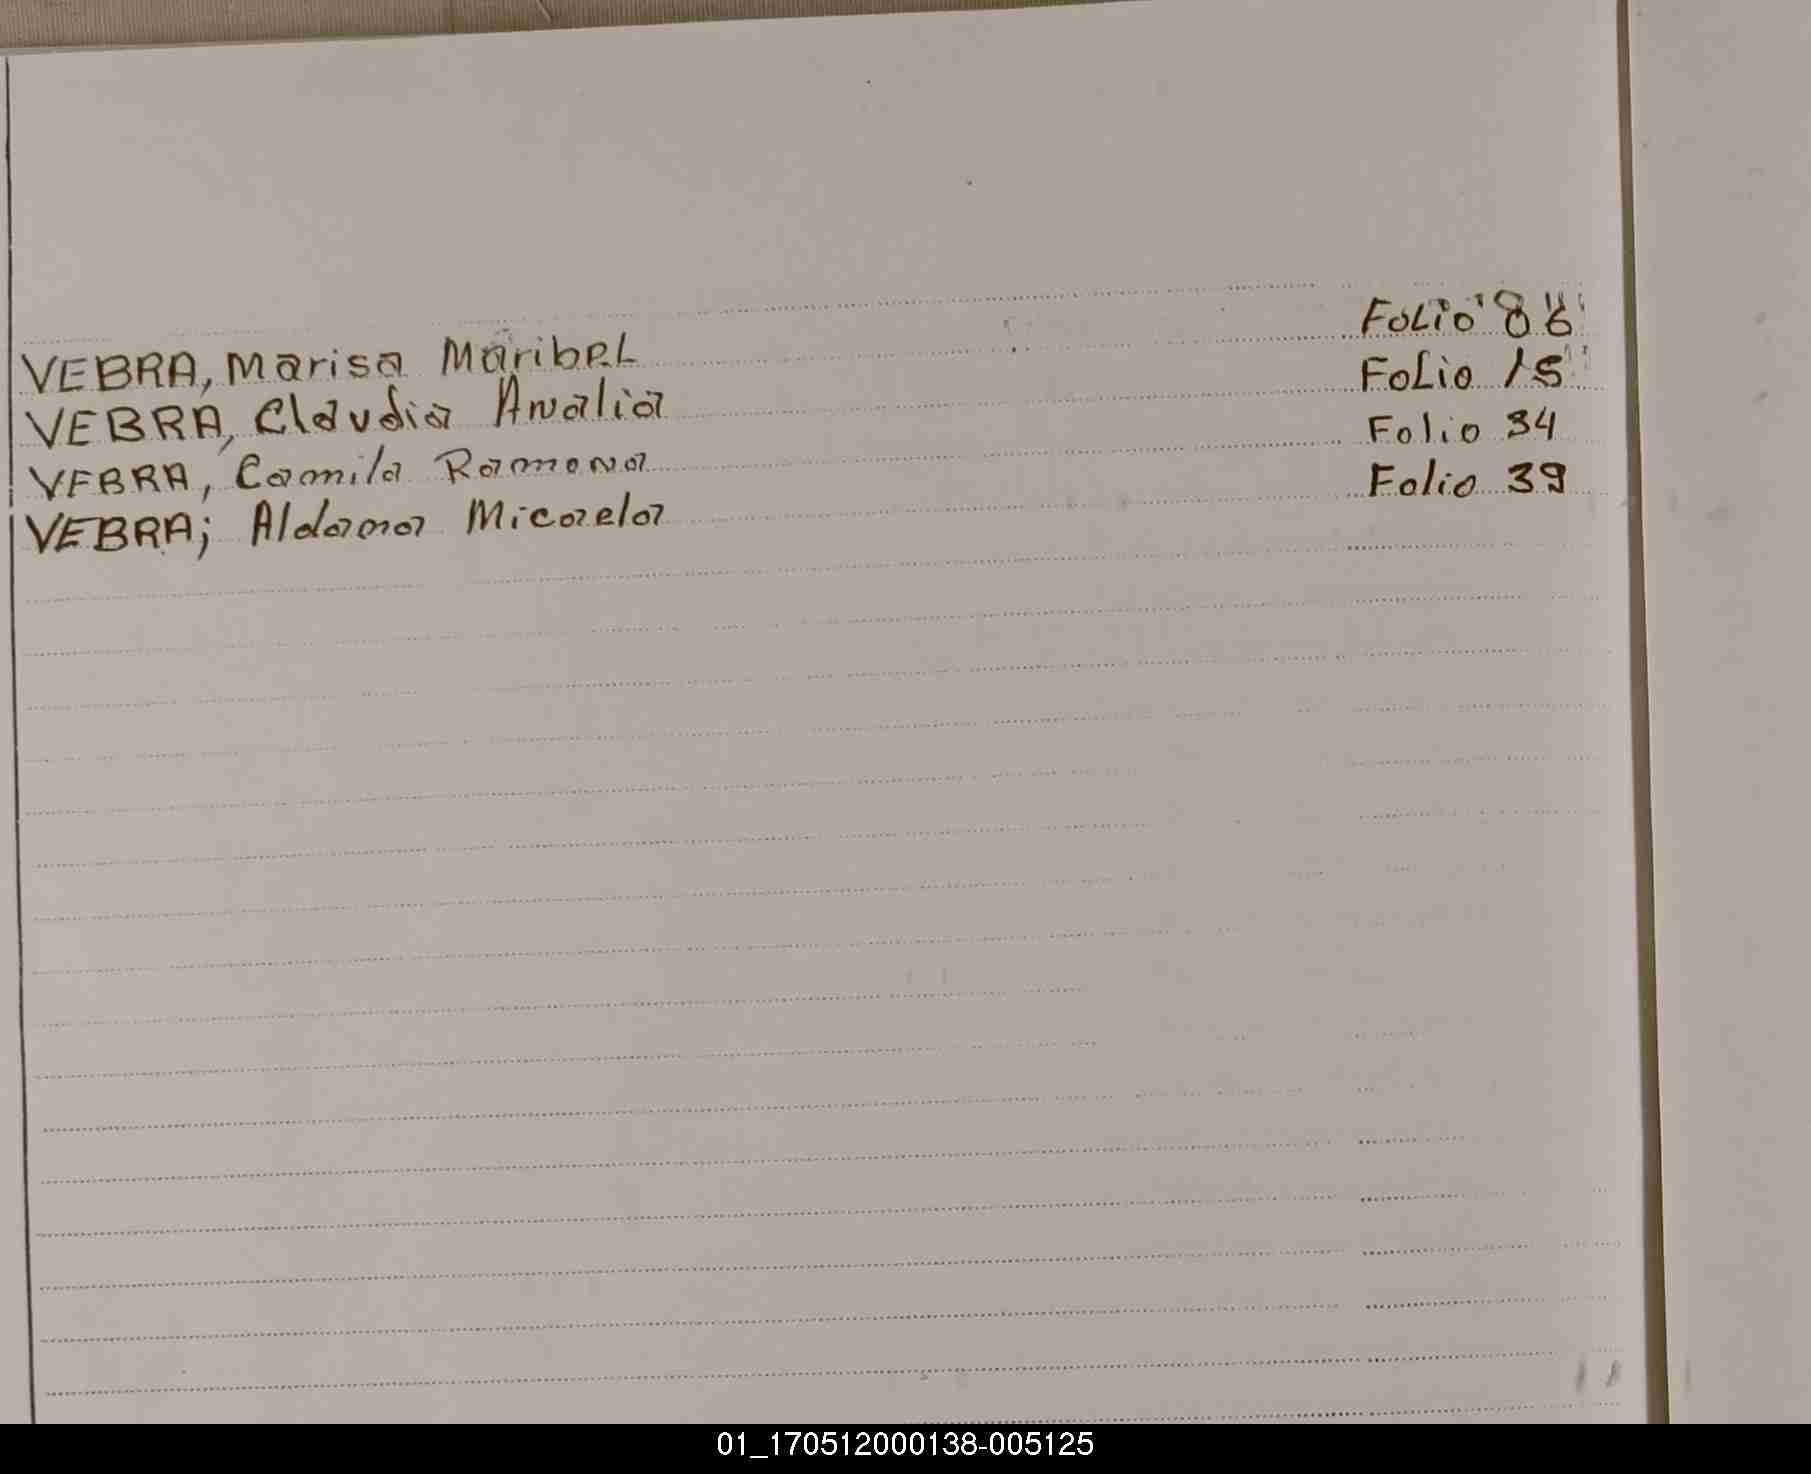 VEBRA, Marisa Maribel Folio 86
VEBRA, Claudia Analia Folio 15
VEBRA, Camila Ramona Folio 34
VEBRA; Aldana Micaela Folio 39
01_170512000138-005125